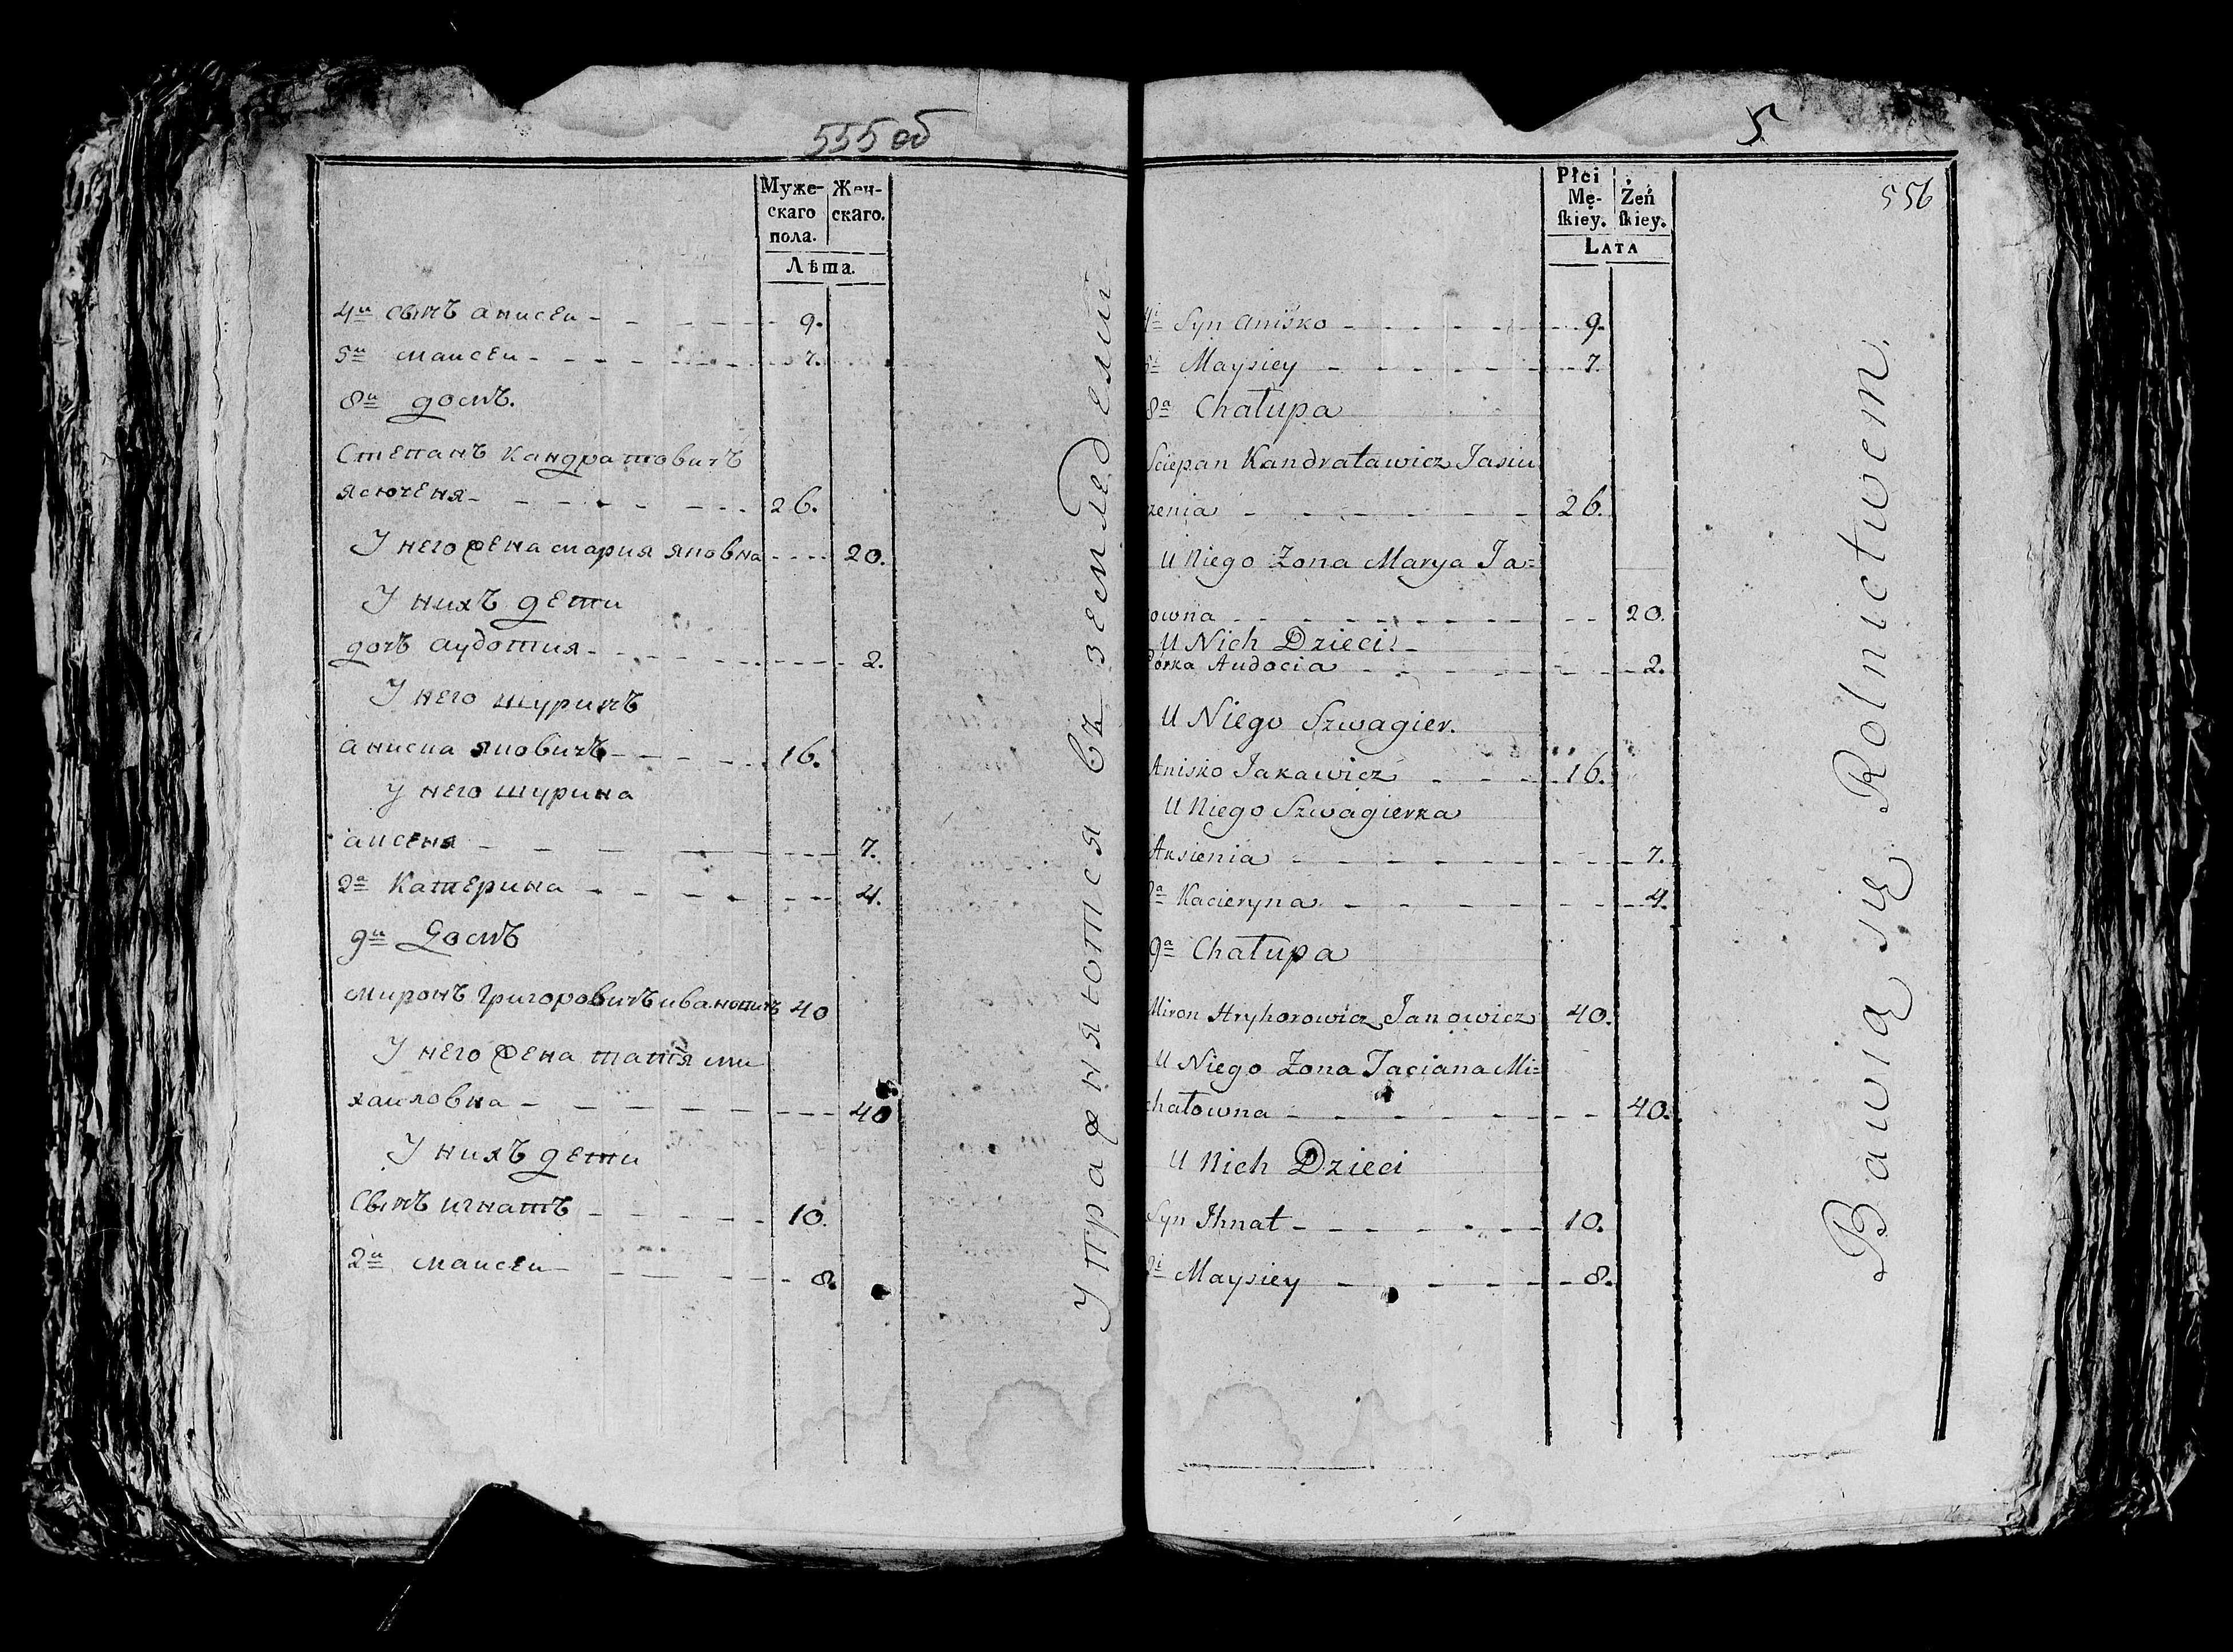 555 об
Муже- Жен-
скаго скаго.
пола.
Лѣта.
4й Сынъ Анисеи - 9.
5й Маисеи - 7.
8й домъ.
Степанъ Кандратовичъ
Ясюченя - 26.
У него жена Мария Яковна - 20.
У нихъ дети
дочъ Аудотия - 2.
У него шуринъ
Аниска Яковичъ - 16.
У него шурина
Аксеня - 7.
2а Катерина - 4.
9й Домъ
Миронъ Григоровичъ Ивановичъ 40
У него жена Татя Ми
хаиловна - 40
У нихъ дети
Сынъ Игнатъ - 10.
2й Маисеи - 8.
Упражняются въ земледелии
5
556
Płci
Mę- Żeń
ſkiey. ſkiey.
LATA
4i Syn Aniśko - 9.
5i Maysiey - 7.
8a Chałupa
Sciepan Kandratawicz Jasiu
zenia - 26.
U Niego Żona Marya Ja=
owna - 20.
U Nich Dzieci
Córka Audocia - 2.
U Niego Szwagier.
Anisko Jakawicz - 16.
U Niego Szwagierka
Aksienia - 7.
2a Kacieryna - 4.
9a Chałupa
Miron Hryhorowicz Janowicz 40.
U Niego Żona Taciana Mi=
chałowna - 40.
U Nich Dzieci
Syn Ihnat - 10.
2i Maysiey - 8.
Bawią się Rolnictwem.